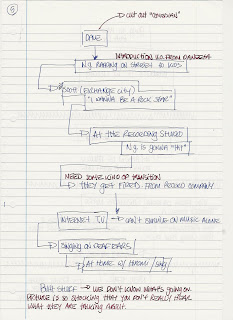 5
CUT OUT "CONGRESSMAN"
DAVE
INTRODUCTION V.O. FROM DANZEER
N.G. RANKING ON STREET TO KIDS
SCOTT (EXCHANGE CITY)
"I WANNA BE A ROCK STAR"
AT THE RECORDING STUDIO
N.G. IS GONNA "HIT"
NEED SOME KIND OF TRANSITION
THEY GET FIRED FROM RECORD COMPANY
INTERNET TV
CAN'T SURVIVE ON MUSIC ALONE
SINGING ON DEAF EARS
AT HOME W/
SING
STUFF
WE DON'T KNOW WHAT'S GOING ON
PICTURE IS SO SHOCKING THAT YOU DON'T REALLY HEAR
WHAT THEY ARE TALKING ABOUT.